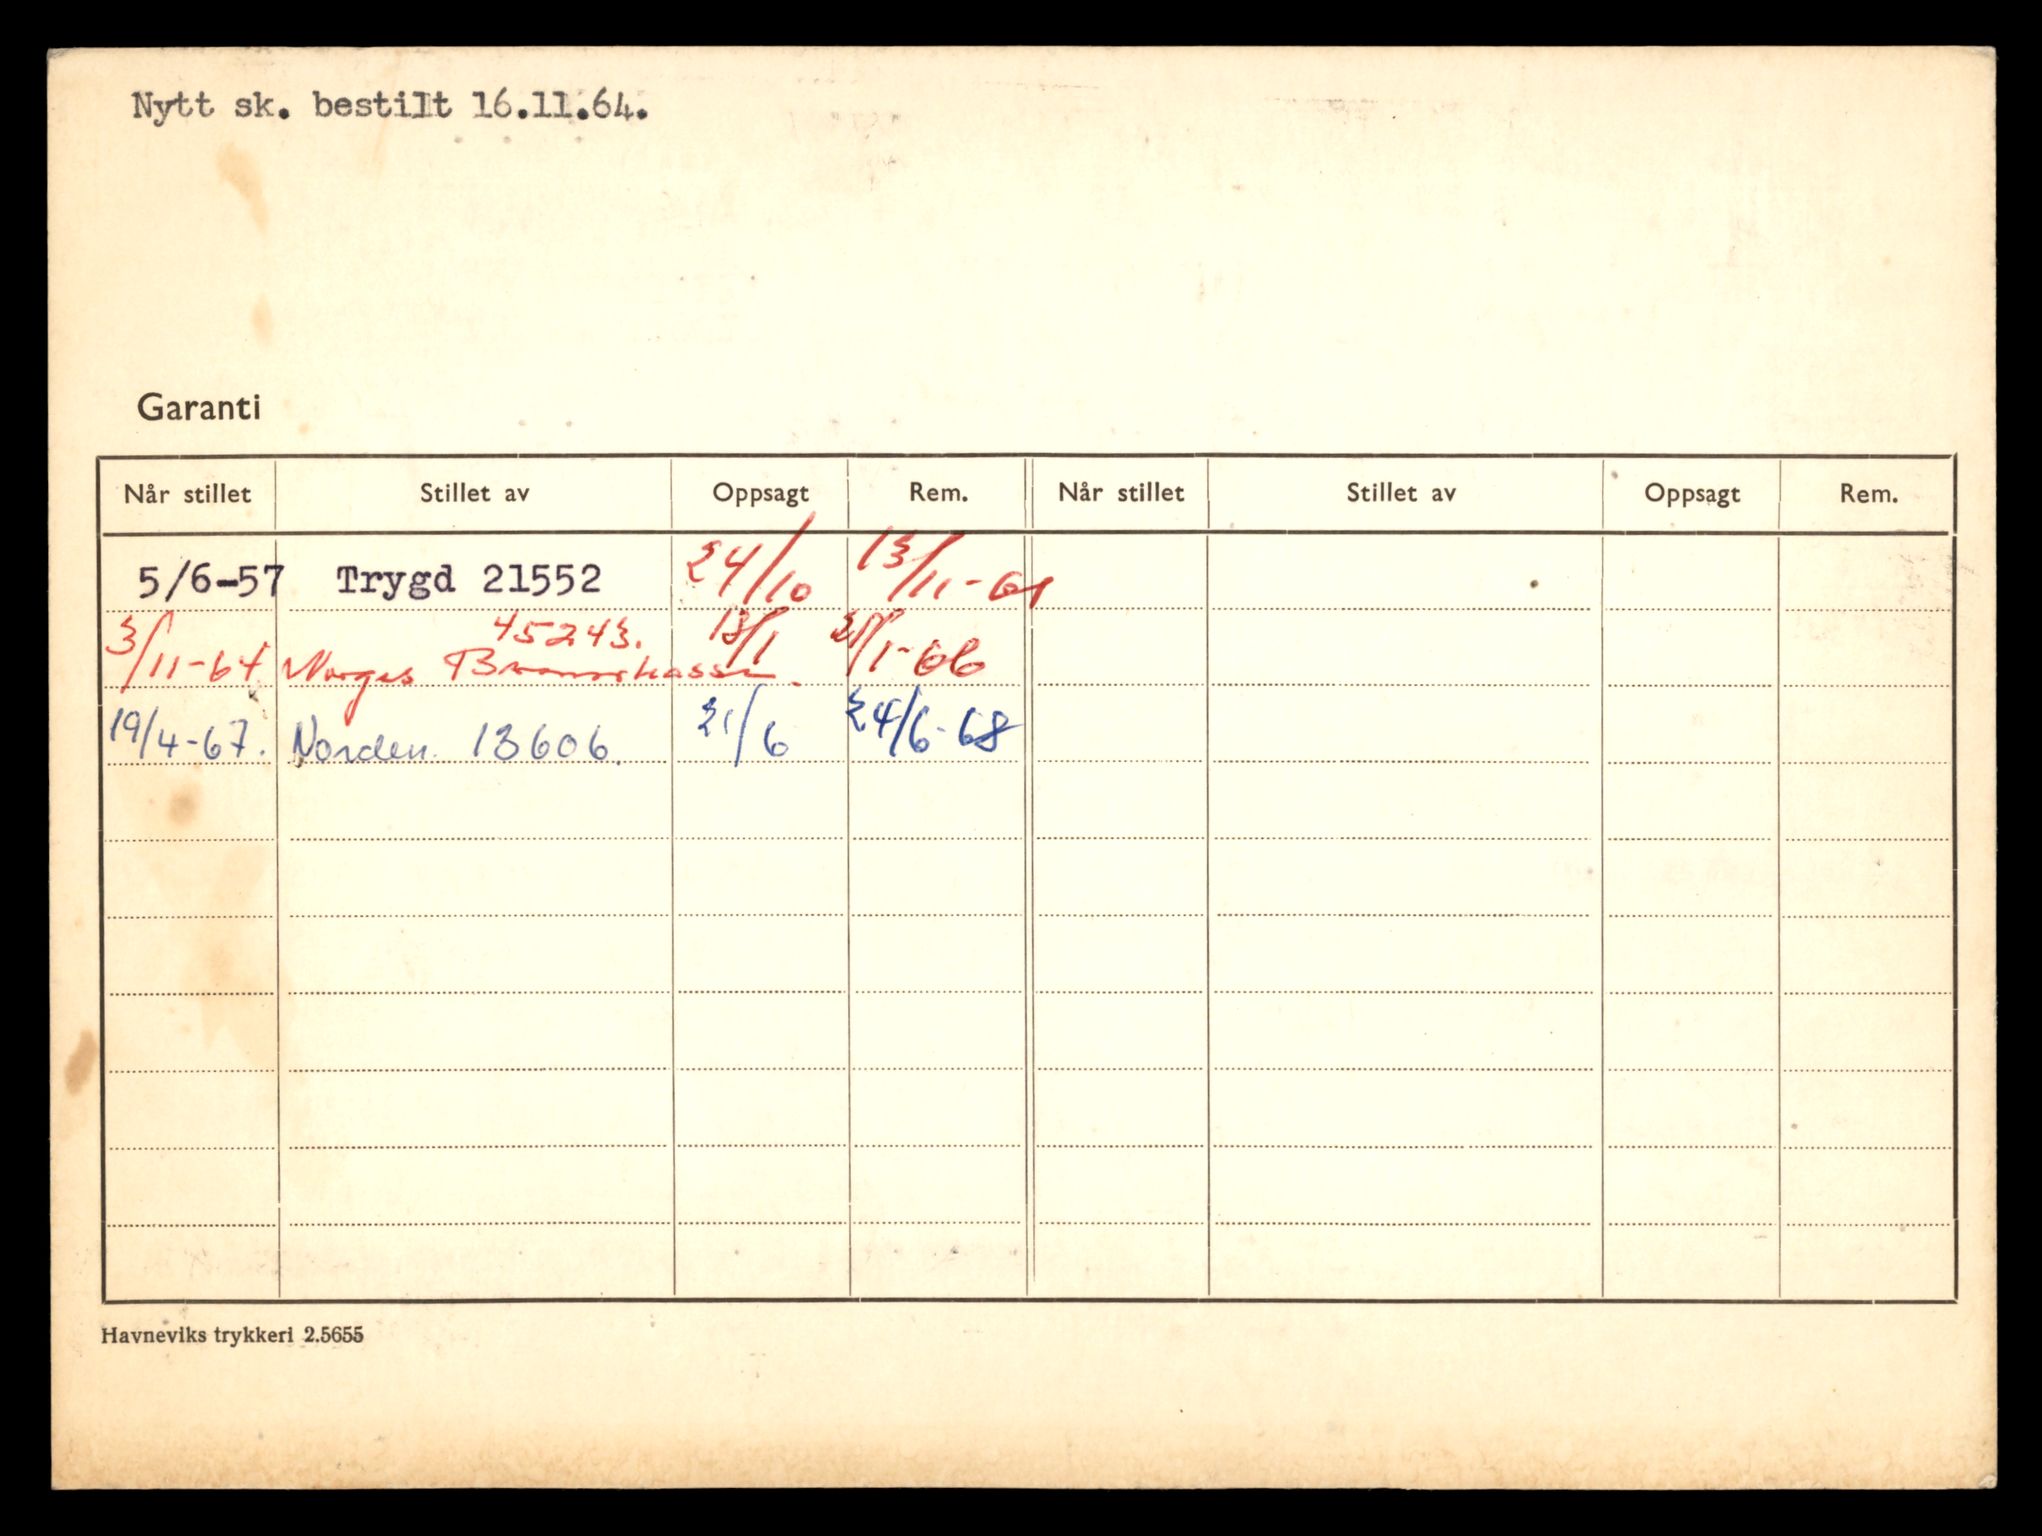 Nytt sk. bestilt 16.11.64.
Garanti
Når stillet Stillet av Oppsagt Rem. Når stillet Stillet av Oppsagt Rem.
5/6-57 Trygd 21552 24/10 13/11-64
45243.
3/11-64 Norges Brannkasse. 13/1 /1-66
19/4-67. Norden. 13606. 21/6 24/6-68
Havneviks trykkeri 2.5655